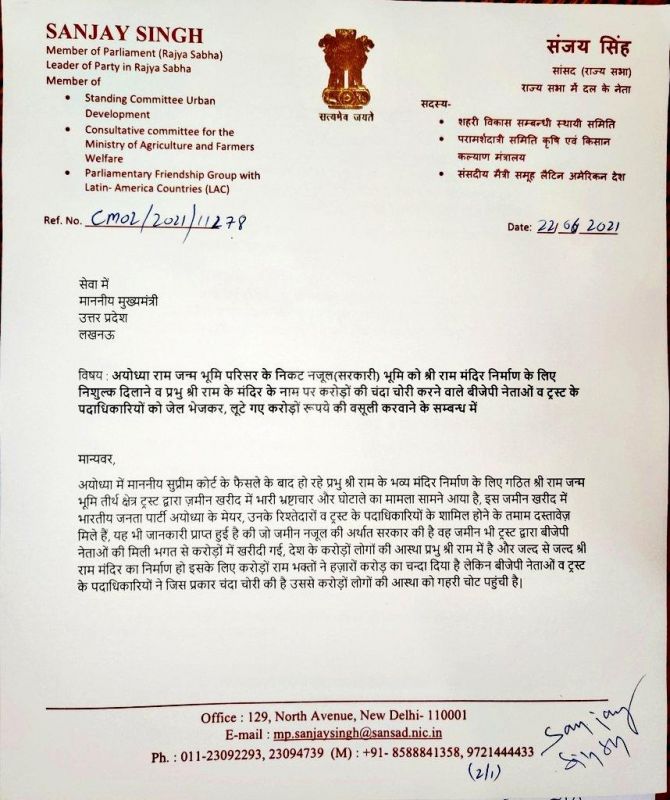 SANJAY SINGH
Member of Parliament (Rajya Sabha)
Leader of Party in Rajya Sabha
Member of
• Standing Committee Urban
Development
• Consultative committee for the
Ministry of Agriculture and Farmers
Welfare
• Parliamentary Friendship Group with
Latin- America Countries (LAC)
सत्यमेव जयते
संजय सिंह
सांसद (राज्य सभा)
राज्य सभा में दल के नेता
सदस्य-
• शहरी विकास सम्बन्धी स्थायी समिति
• परामर्शदात्री समिति कृषि एवं किसान
कल्याण मंत्रालय
• संसदीय मैत्री समूह लैटिन अमेरिकन देश
Ref. No. CMOL/2021/11278
Date: 22/06/2021
सेवा में
माननीय मुख्यमंत्री
उत्तर प्रदेश
लखनऊ
विषय : अयोध्या राम जन्म भूमि परिसर के निकट नजूल(सरकारी) भूमि को श्री राम मंदिर निर्माण के लिए
निशुल्क दिलाने व प्रभु श्री राम के मंदिर के नाम पर करोड़ों की चंदा चोरी करने वाले बीजेपी नेताओं व ट्रस्ट के
पदाधिकारियों को जेल भेजकर, लूटे गए करोड़ों रूपये की वसूली करवाने के सम्बन्ध में
मान्यवर,
अयोध्या में माननीय सुप्रीम कोर्ट के फैसले के बाद हो रहे प्रभु श्री राम के भव्य मंदिर निर्माण के लिए गठित श्री राम जन्म
भूमि तीर्थ क्षेत्र ट्रस्ट द्वारा ज़मीन खरीद में भारी भ्रष्टाचार और घोटाले का मामला सामने आया है, इस जमीन खरीद में
भारतीय जनता पार्टी अयोध्या के मेयर, उनके रिश्तेदारों व ट्रस्ट के पदाधिकारियों के शामिल होने के तमाम दस्तावेज़
मिले हैं, यह भी जानकारी प्राप्त हुई है की जो जमीन नजूल की अर्थात सरकार की है वह जमीन भी ट्रस्ट द्वारा बीजेपी
नेताओं की मिली भगत से करोड़ों में खरीदी गई, देश के करोड़ों लोगों की आस्था प्रभु श्री राम में है और जल्द से जल्द श्री
राम मंदिर का निर्माण हो इसके लिए करोड़ों राम भक्तों ने हज़ारों करोड़ का चन्दा दिया है लेकिन बीजेपी नेताओं व ट्रस्ट
के पदाधिकारियों ने जिस प्रकार चंदा चोरी की है उससे करोड़ों लोगों की आस्था को गहरी चोट पहुंची है|
Office : 129, North Avenue, New Delhi- 110001
E-mail : mp.sanjaysingh@sansad.nic.in
Ph. : 011-23092293, 23094739 (M) : +91- 8588841358, 9721444433
(2/1)
Sanjay
Singh